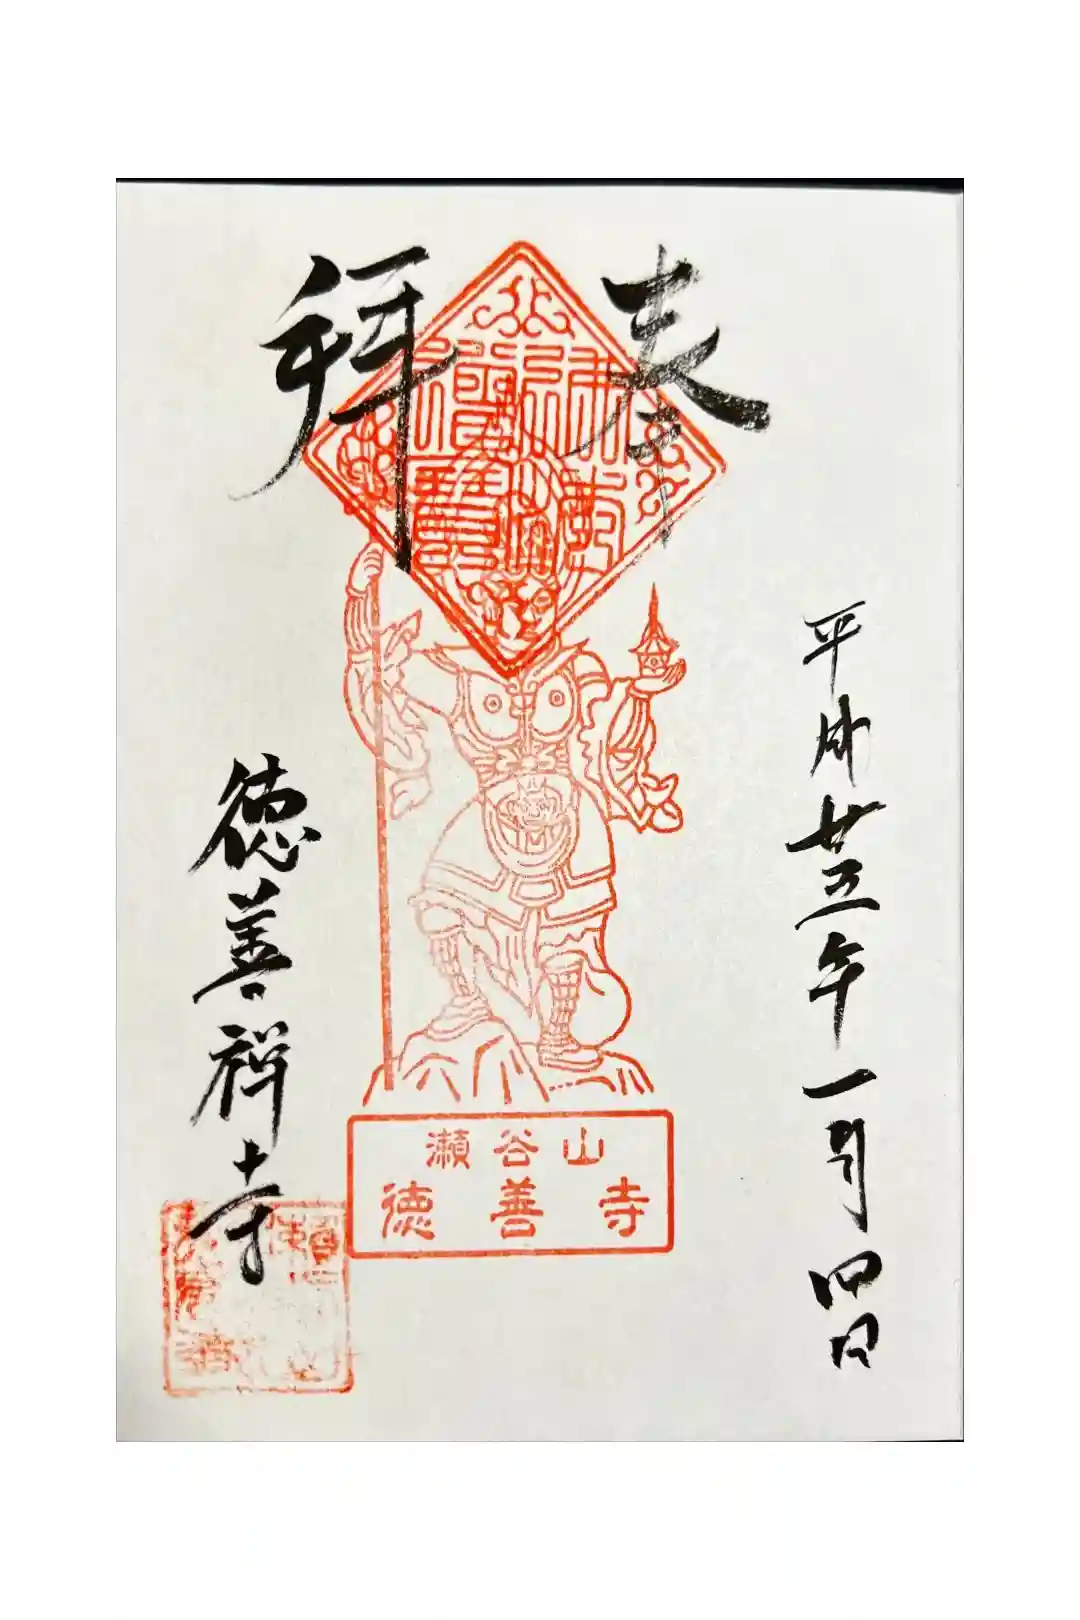 奉拝
平成廿五年一月四日
徳善禅寺
瀬谷山
徳善寺